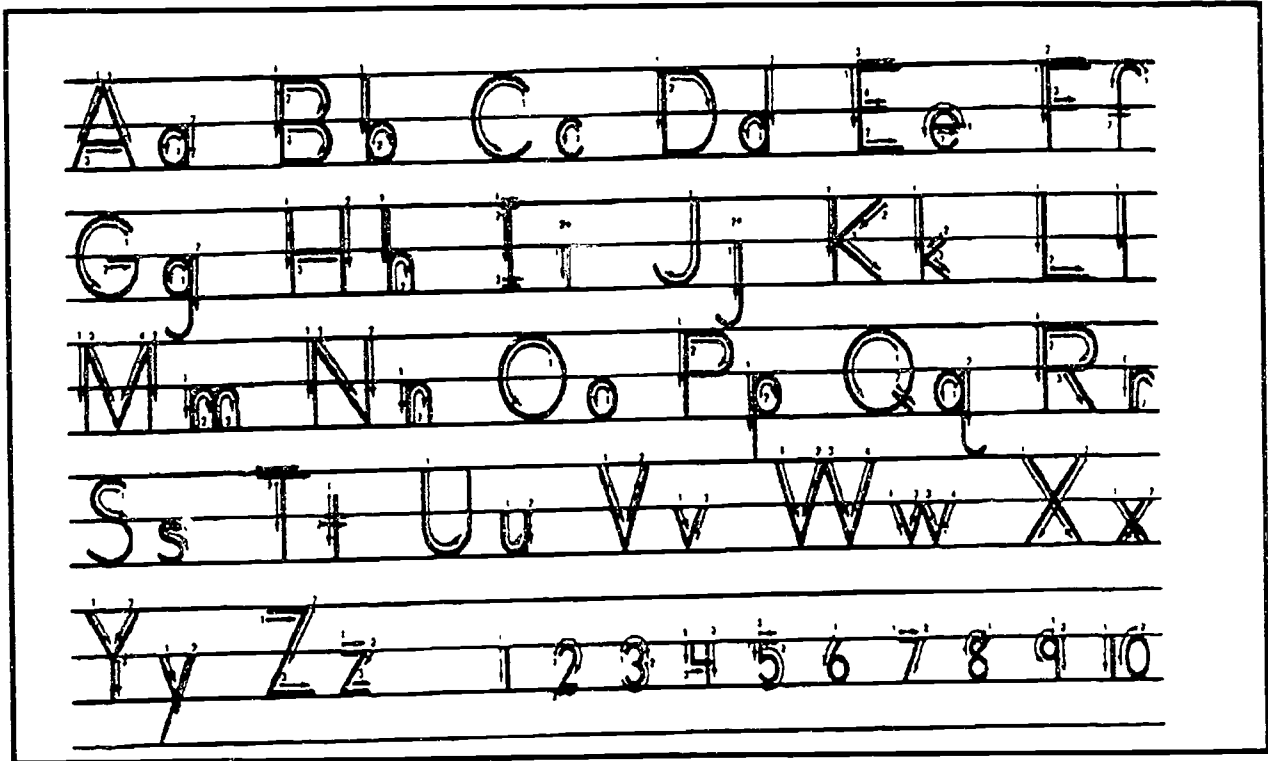 Aa Bb Cc Dd Ee Ff
Gg Hh Ii Jj Kk Ll
Mm Nn Oo Pp Qq Rr
Ss Tt Uu Vv Ww Xx
Yy Zz 1 2 3 4 5 6 7 8 9 10